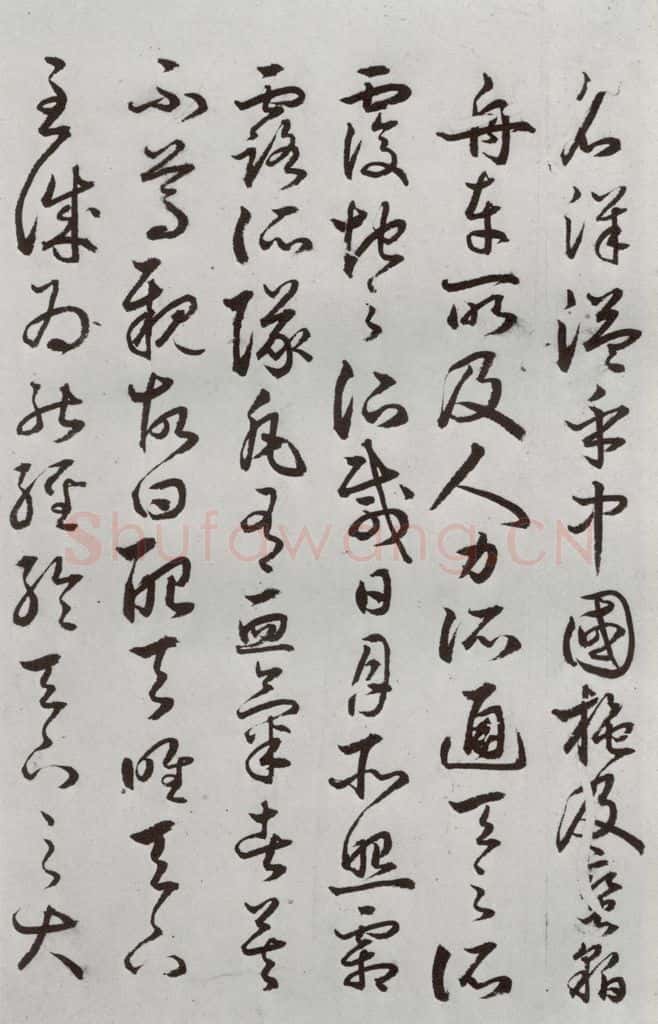 名洋溢乎中國施及蠻貊
舟車所及人力所通天之所
覆地之所載日月所照霜
露所隊凡有血氣者莫
不尊親故曰配天唯天下
至誠為能經綸天下之大
Shufawang.CN